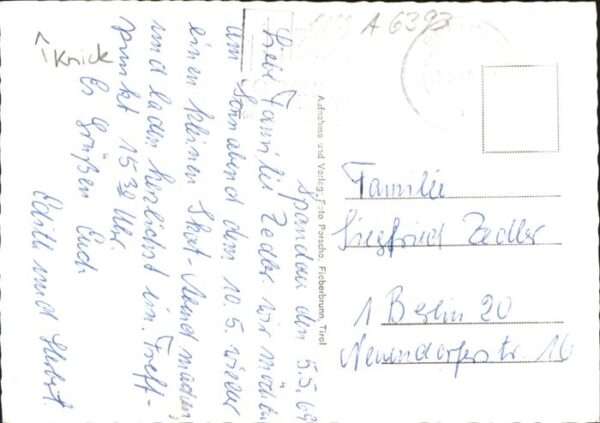 A 6393
Knick
Spandau den 5.5.69
Liebe Familie Zedler wir möchten
am Sonnabend dem 10.5. wieder
einen kleinen Skat-Abend machen
und laden herzlichst ein. Treff-
punkt 15³⁰ Uhr.
Es Grüßen Euch
Edith und Herbert
Aufnahme und Verlag: Foto Patscha, Fieberbrunn, Tirol
Familie
Siegfried Zedler
1 Berlin 20
Neuendorferstr. 16